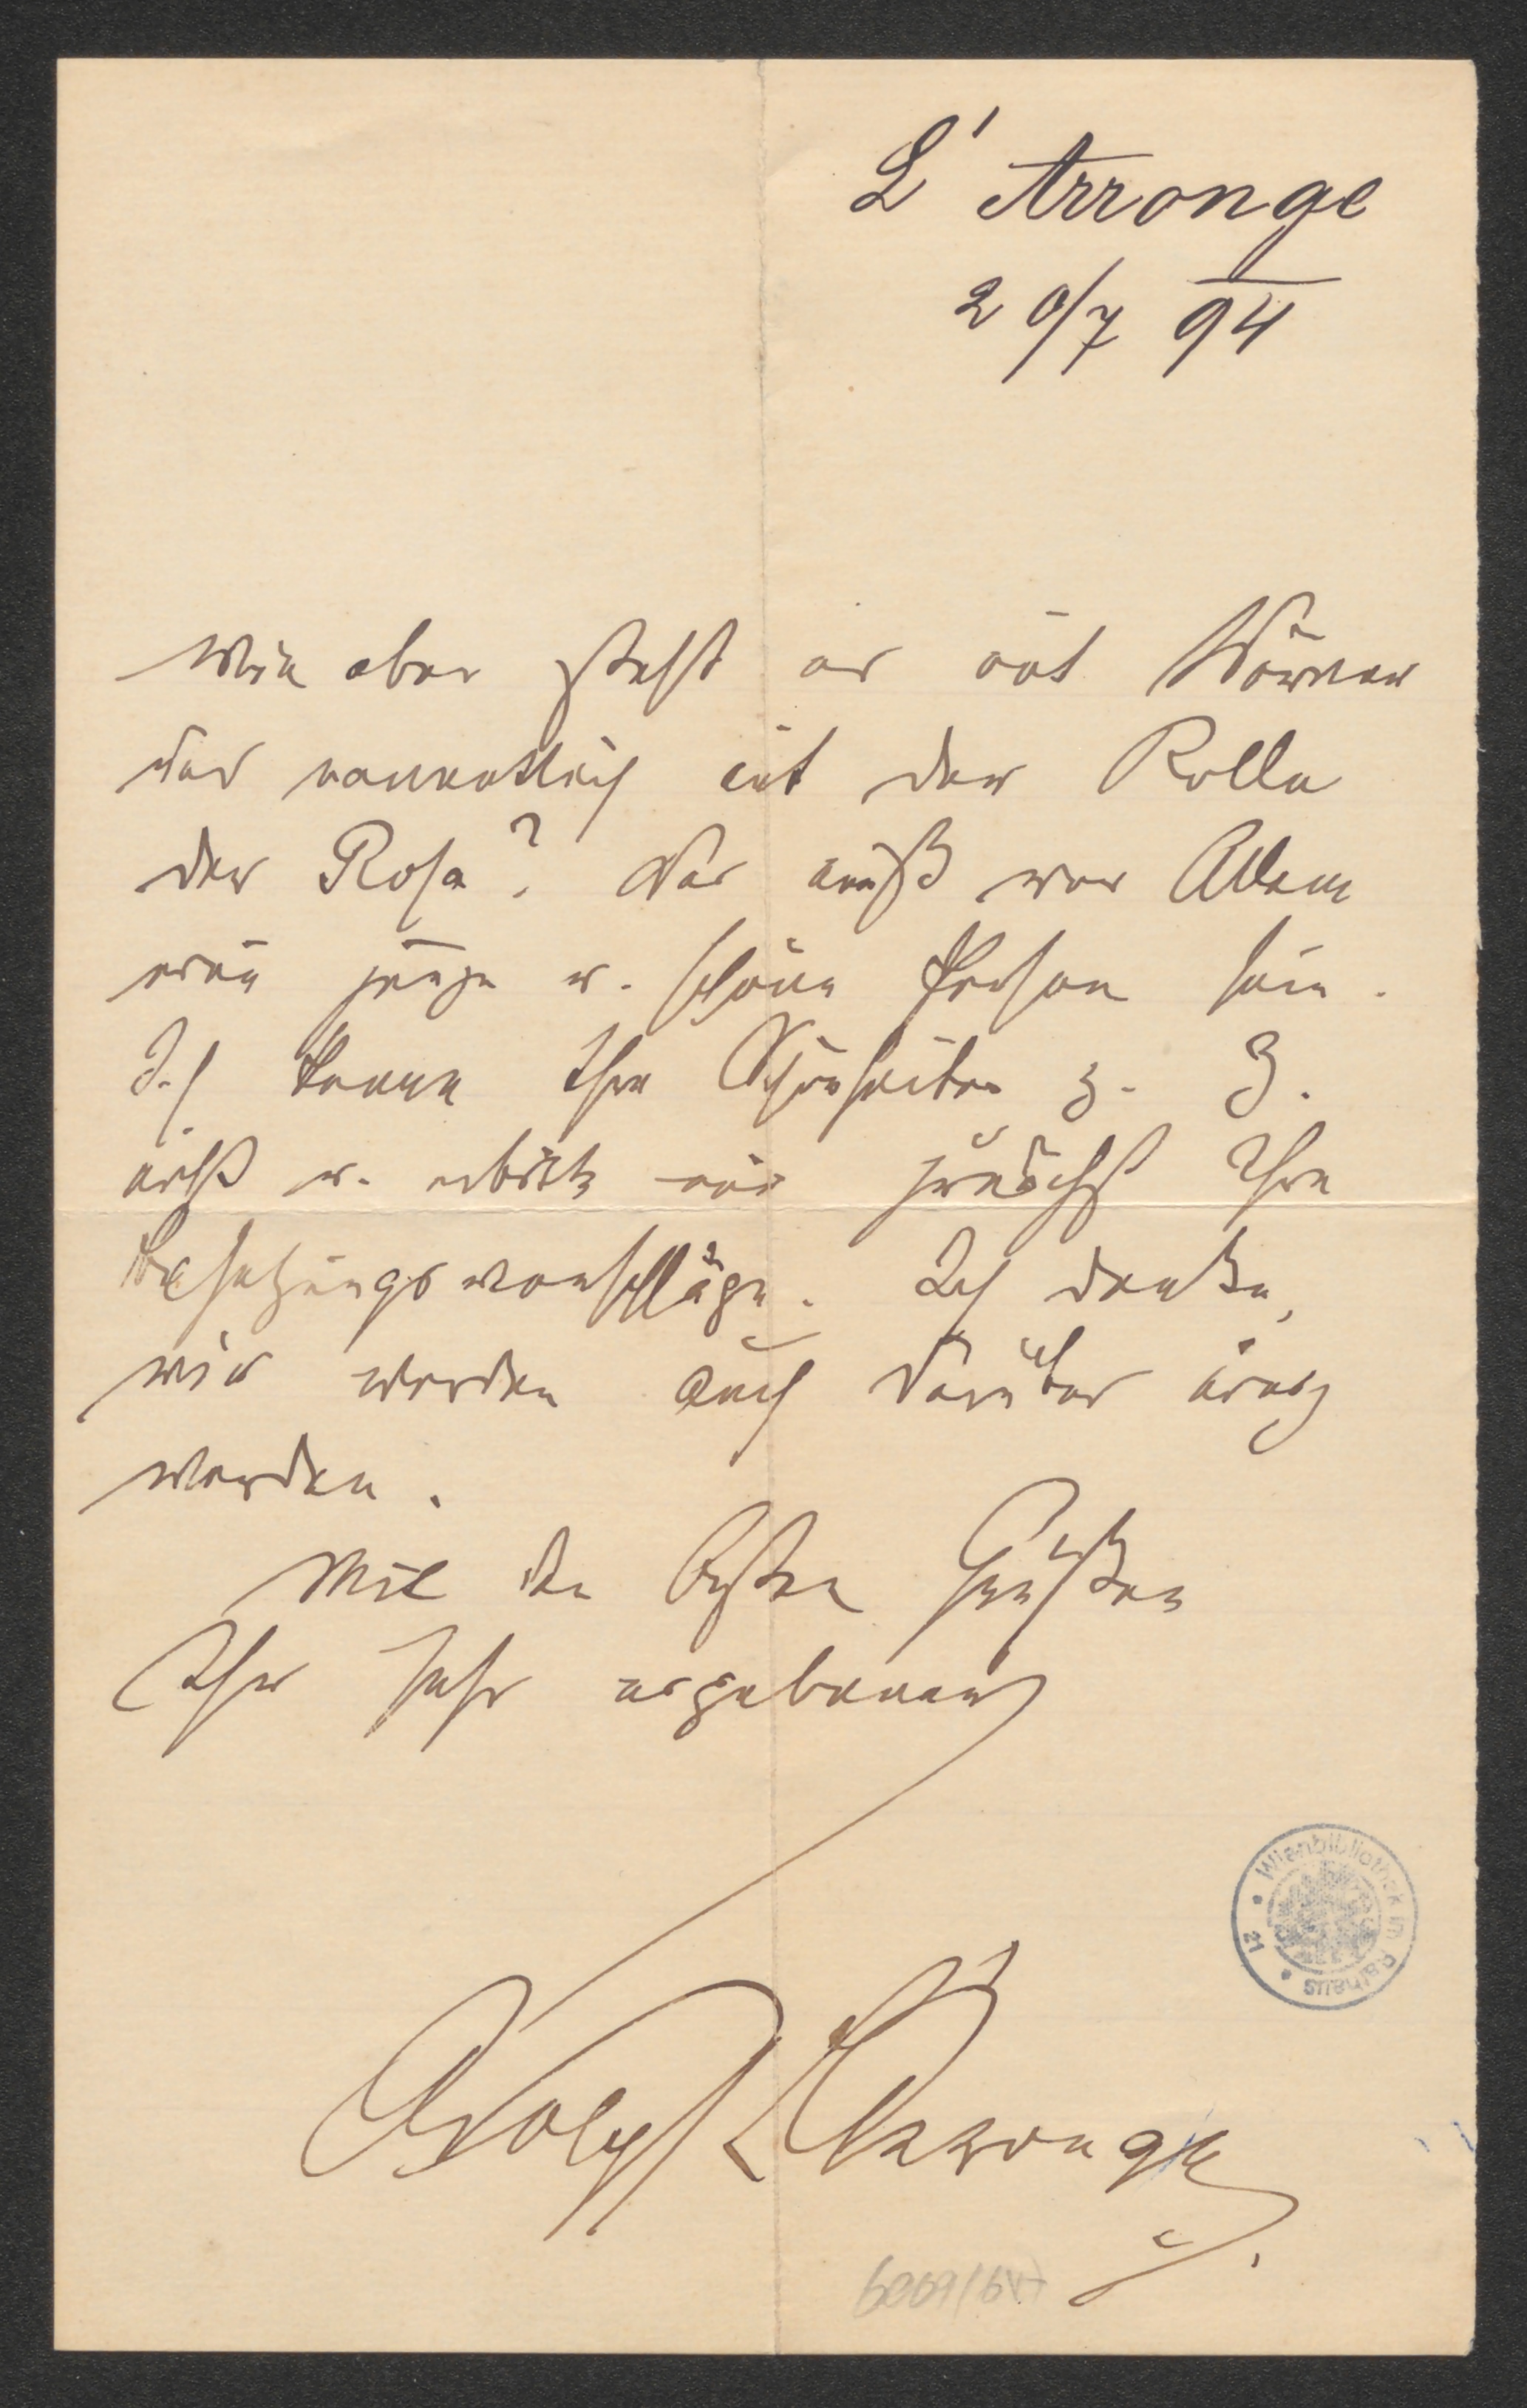 L'Arronge
20/7 94
Wie aber steht es mit
und namentlich mit der Rolle
der Rosa? Das muß vor Allem
eine junge u. schöne Person sein.
Ich kenne Ihre Schönheiten z. Z.
nicht u. erbitte mir zunächst Ihre
Besetzungsvorschläge. Ich denke,
wir werden auch darüber einig
werden.
Mit den besten Grüßen
Ihr sehr ergebener
Adolph L'Arronge
Wienbibliothek im Rathaus
21